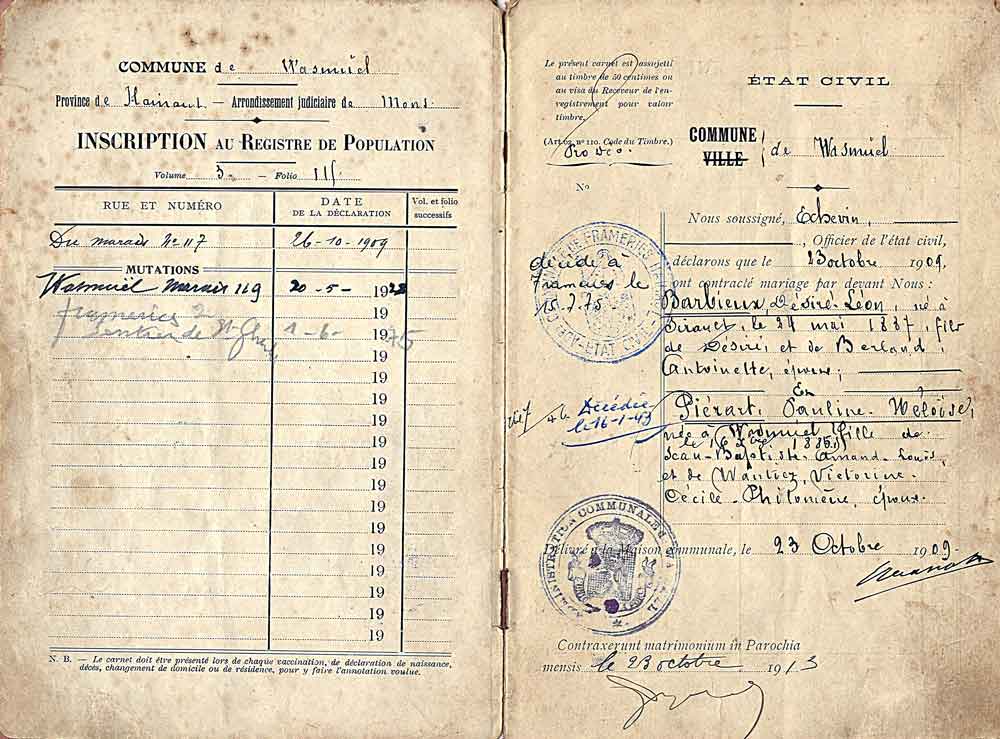 COMMUNE de Wasmuël
Province de Hainaut — Arrondissement judiciaire de Mons.
INSCRIPTION AU REGISTRE DE POPULATION
Volume 3 — Folio 115
RUE ET NUMÉRO
DATE DE LA DÉCLARATION
Vol. et folio successifs
Du marais N° 117 26-10-1909
MUTATIONS
Wasmuël Marais 119 20-5- 1922
frameries
Sentier de 1-6- 1975
19
19
19
19
19
19
19
19
19
19
19
19
19
19
N. B. — Le carnet doit être présenté lors de chaque vaccination, de déclaration de naissance,
décès, changement de domicile ou de résidence, pour y faire l'annotation voulue.
Le présent carnet est assujetti
au timbre de 50 centimes ou
au visa du Receveur de l'en-
registrement pour valoir
timbre.
(Art. 62, n° 110. Code du Timbre.)
Pro Deo
N°
ÉTAT CIVIL
COMMUNE
VILLE
de Wasmuël
Nous soussigné, Echevin,
, Officier de l'état civil,
déclarons que le 23 octobre 1909.
ont contracté mariage par devant Nous :
Barbieux, Désiré-Léon, né à
le 24 mai 1887, fils
de Désiré, et de Berland,
Antoinette, époux;
Et
Piérart, Pauline-Héloïse,
née à Wasmuël
le 16 1885, fille de
Jean-Baptiste-Amand-Louis,
et de Wantiez, Victorine-
Cécile-Philomène, époux.
décédé à
Frameries le
15.7.75
Décédée
le 16-1-43
ADMINISTRATION COMMUNALE
ÉTAT CIVIL
FRAMERIES
Délivré à la Maison communale, le 23 Octobre 1909.
Contraxerunt matrimonium in Parochia
mensis le 23 octobre 1913